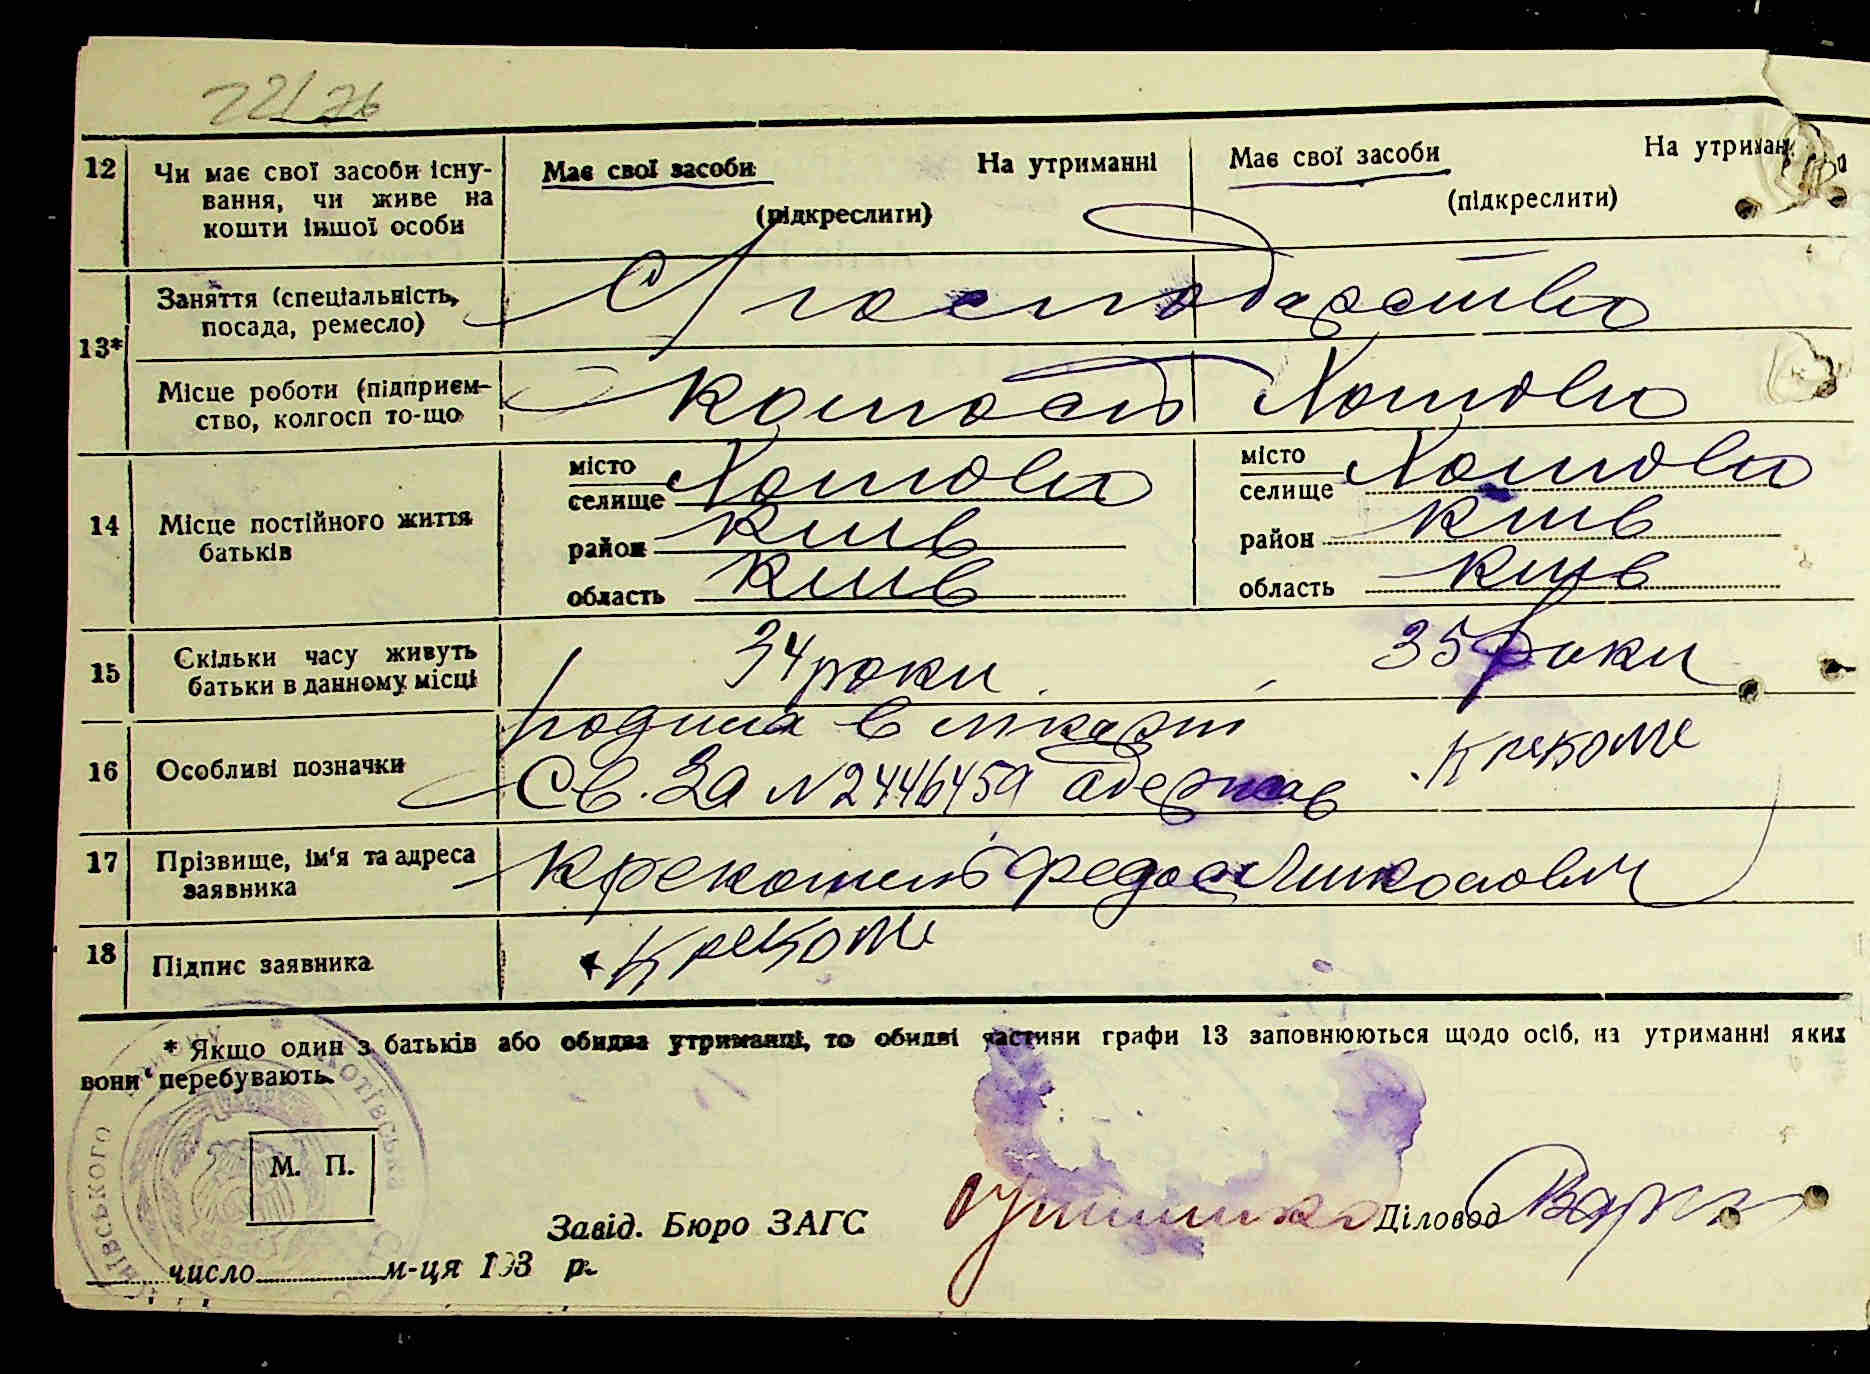 22/76
12 Чи має свої засоби існу-
вання, чи живе на
кошти іншої особи
Має свої засоби На утриманні
(підкреслити)
Має свої засоби На утриман
(підкреслити)
13* Заняття (спеціальність,
посада, ремесло)
С/господарство
Місце роботи (підприєм-
ство, колгосп то-що)
Хотово
14 Місце постійного життя
батьків
місто
селище Хотово
район Київ
область Київ
місто
селище Хотово
район Київ
область Київ
15 Скільки часу живуть
батьки в данному місці
34 роки 35 роки
16 Особливі позначки
родила в лікарні
Св. За №2446459 одержав
Крекоте
17 Прізвище, ім'я та адреса
заявника
Крекотень Федос Миколович
18 Підпис заявника
Крекоте
* Якщо один з батьків або обидва утриманці, то обидві частини графи 13 заповнюються щодо осіб, на утриманні яких
вони перебувають.
М. П.
Завід. Бюро ЗАГС Діловод
число м-ця 193 р.